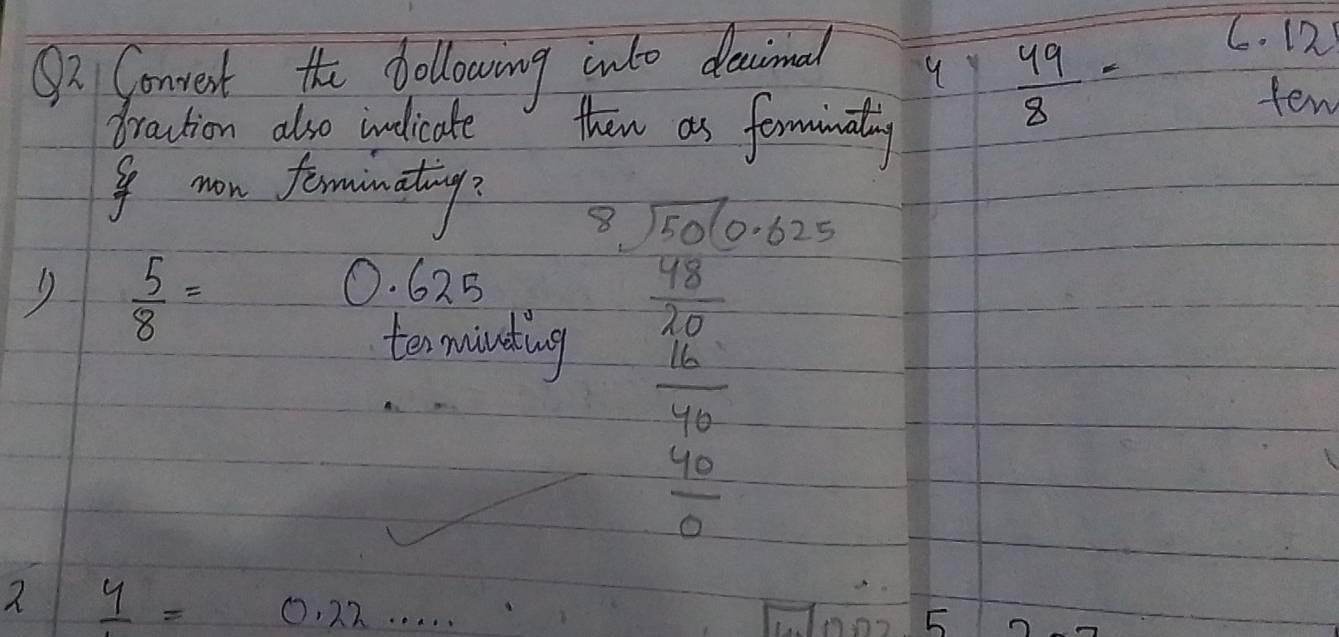 Q2 Convert the following into decimal
fraction also indicate then as terminating
& non terminating?
8 √50(0.625
1) 5/8 = 0.625
48
20
terminating
16
40
40
0
2 4 = 0.22 .....
4 49/8 = 6.12
ter
5